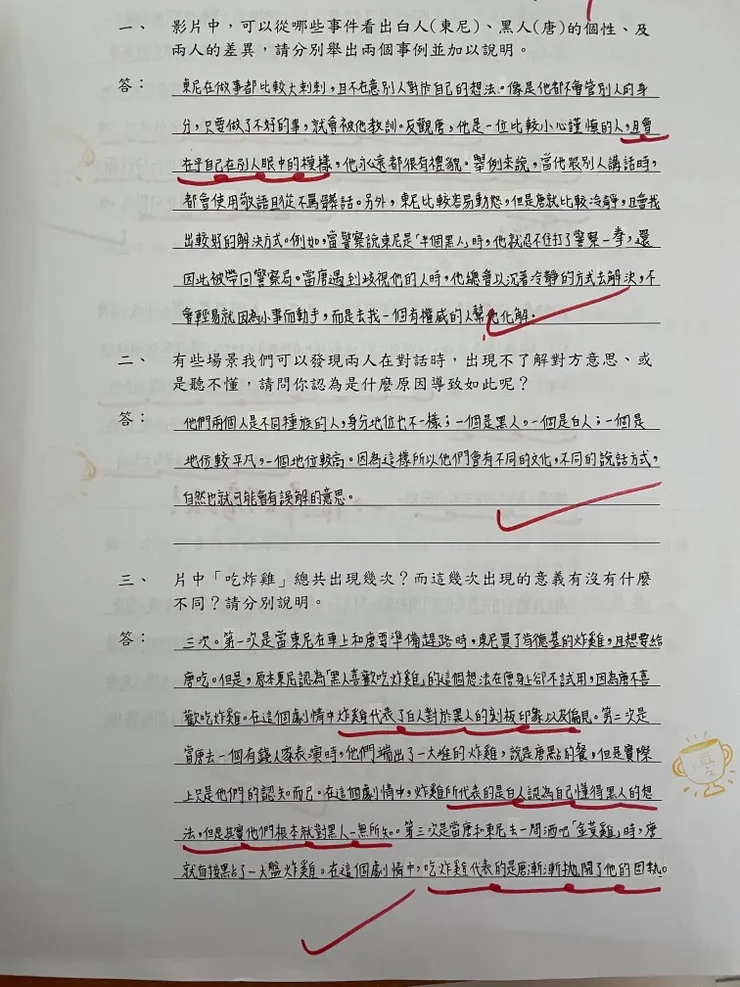 一、 影片中，可以從哪些事件看出白人(東尼)、黑人(唐)的個性、及
兩人的差異，請分別舉出兩個事例並加以說明。
答： 東尼在做事都比較大剌剌，且不在意別人對作自己的想法。像是他都不會管別人的身
分，只要做了不好的事，就會被他教訓。反觀唐，他是一位比較小心謹慎的人，且會
在乎自己在別人眼中的模樣，他永遠都很有禮貌。舉例來說，當他跟別人講話時，
都會使用敬語且從不罵髒話。另外，東尼比較容易動怒，但是唐就比較冷靜，且會找
出較好的解決方式。例如，當警察說東尼是「半個黑人」時，他就忍不住打了警察一拳，還
因此被帶回警察局。當唐遇到歧視他的人時，他總會以沉著冷靜的方式去解決，不
會輕易就因為小事而動手，而是去找一個有權威的人幫他化解。
二、 有些場景我們可以發現兩人在對話時，出現不了解對方意思、或
是聽不懂，請問你認為是什麼原因導致如此呢？
答： 他們兩個人是不同種族的人，身分地位也不一樣；一個是黑人，一個是白人；一個是
地位較平凡，一個地位較高。因為這樣所以他們會有不同的文化，不同的說話方式，
自然也就可能會有誤解的意思。
三、 片中「吃炸雞」總共出現幾次？而這幾次出現的意義有沒有什麼
不同？請分別說明。
答： 三次。第一次是當東尼在車上和唐要準備趕路時，東尼買了肯德基的炸雞，且想要給
唐吃。但是，原本東尼認為「黑人喜歡吃炸雞」的這個想法在唐身上卻不試用，因為唐不喜
歡吃炸雞。在這個劇情中炸雞代表了白人對於黑人的刻板印象以及偏見。第二次是
當唐去一個有錢人家表演時，他們端出了一大堆的炸雞，說是唐點的餐，但是實際
上只是他們的認知而已。在這個劇情中，炸雞所代表的是白人認為自己懂得黑人的想
法，但是其實他們根本就對黑人一無所知。第三次是當唐和東尼去一間酒吧「金萱雞」時，唐
就直接點了一大盤炸雞。在這個劇情中，吃炸雞代表的是唐漸漸拋開了他的固執。